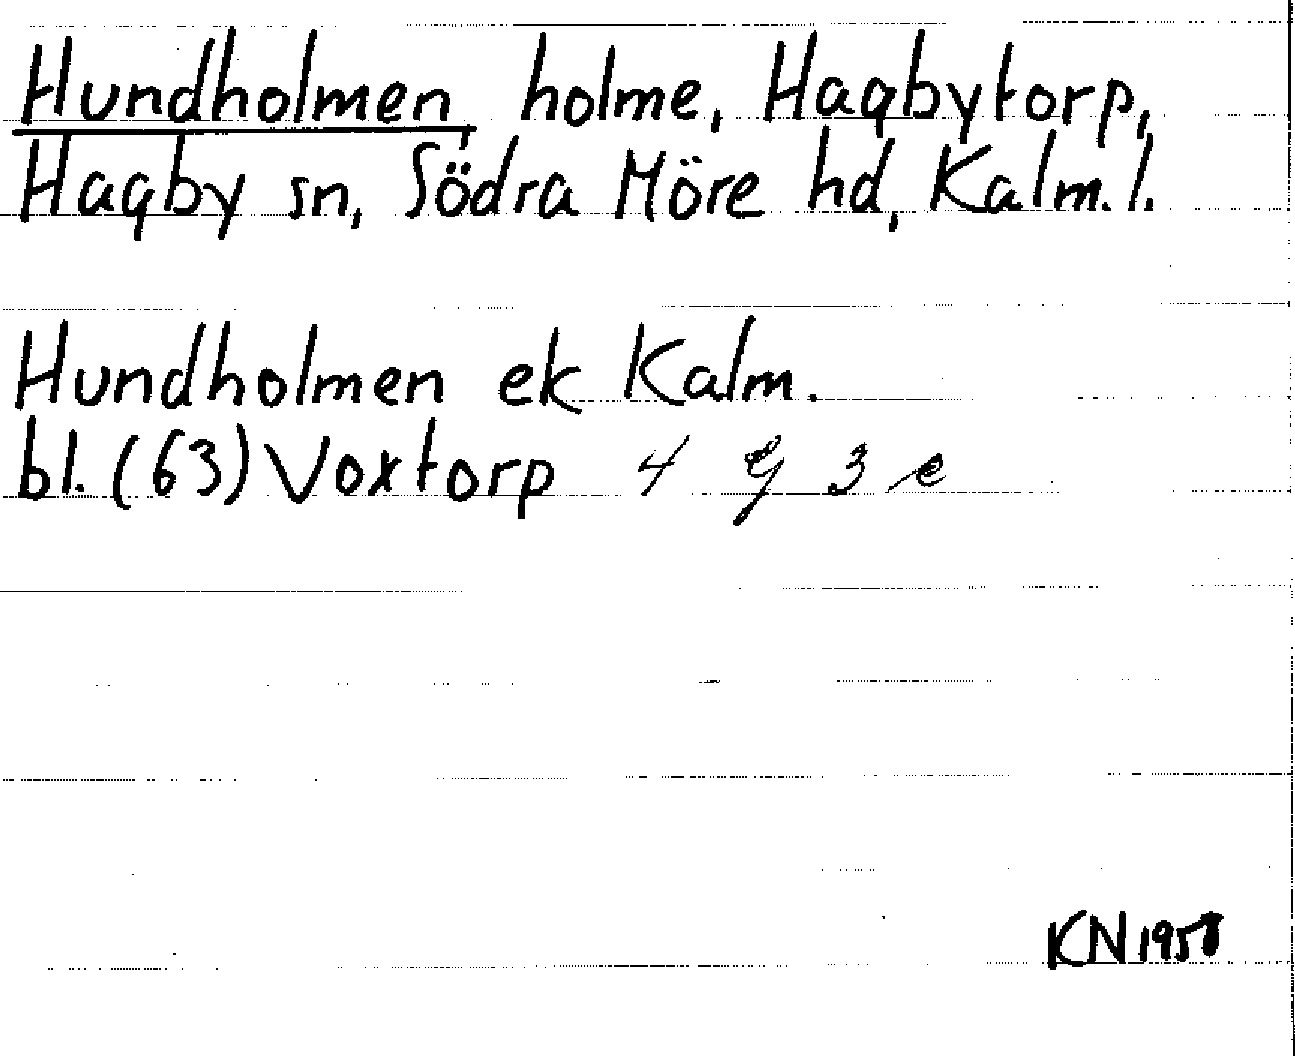 Hundholmen, holme, Hagbytorp,
Hagby sn, Södra Möre hd, Kalm. l.
Hundholmen ek Kalm.
bl. (63) Voxtorp 4 G 3 e
KN